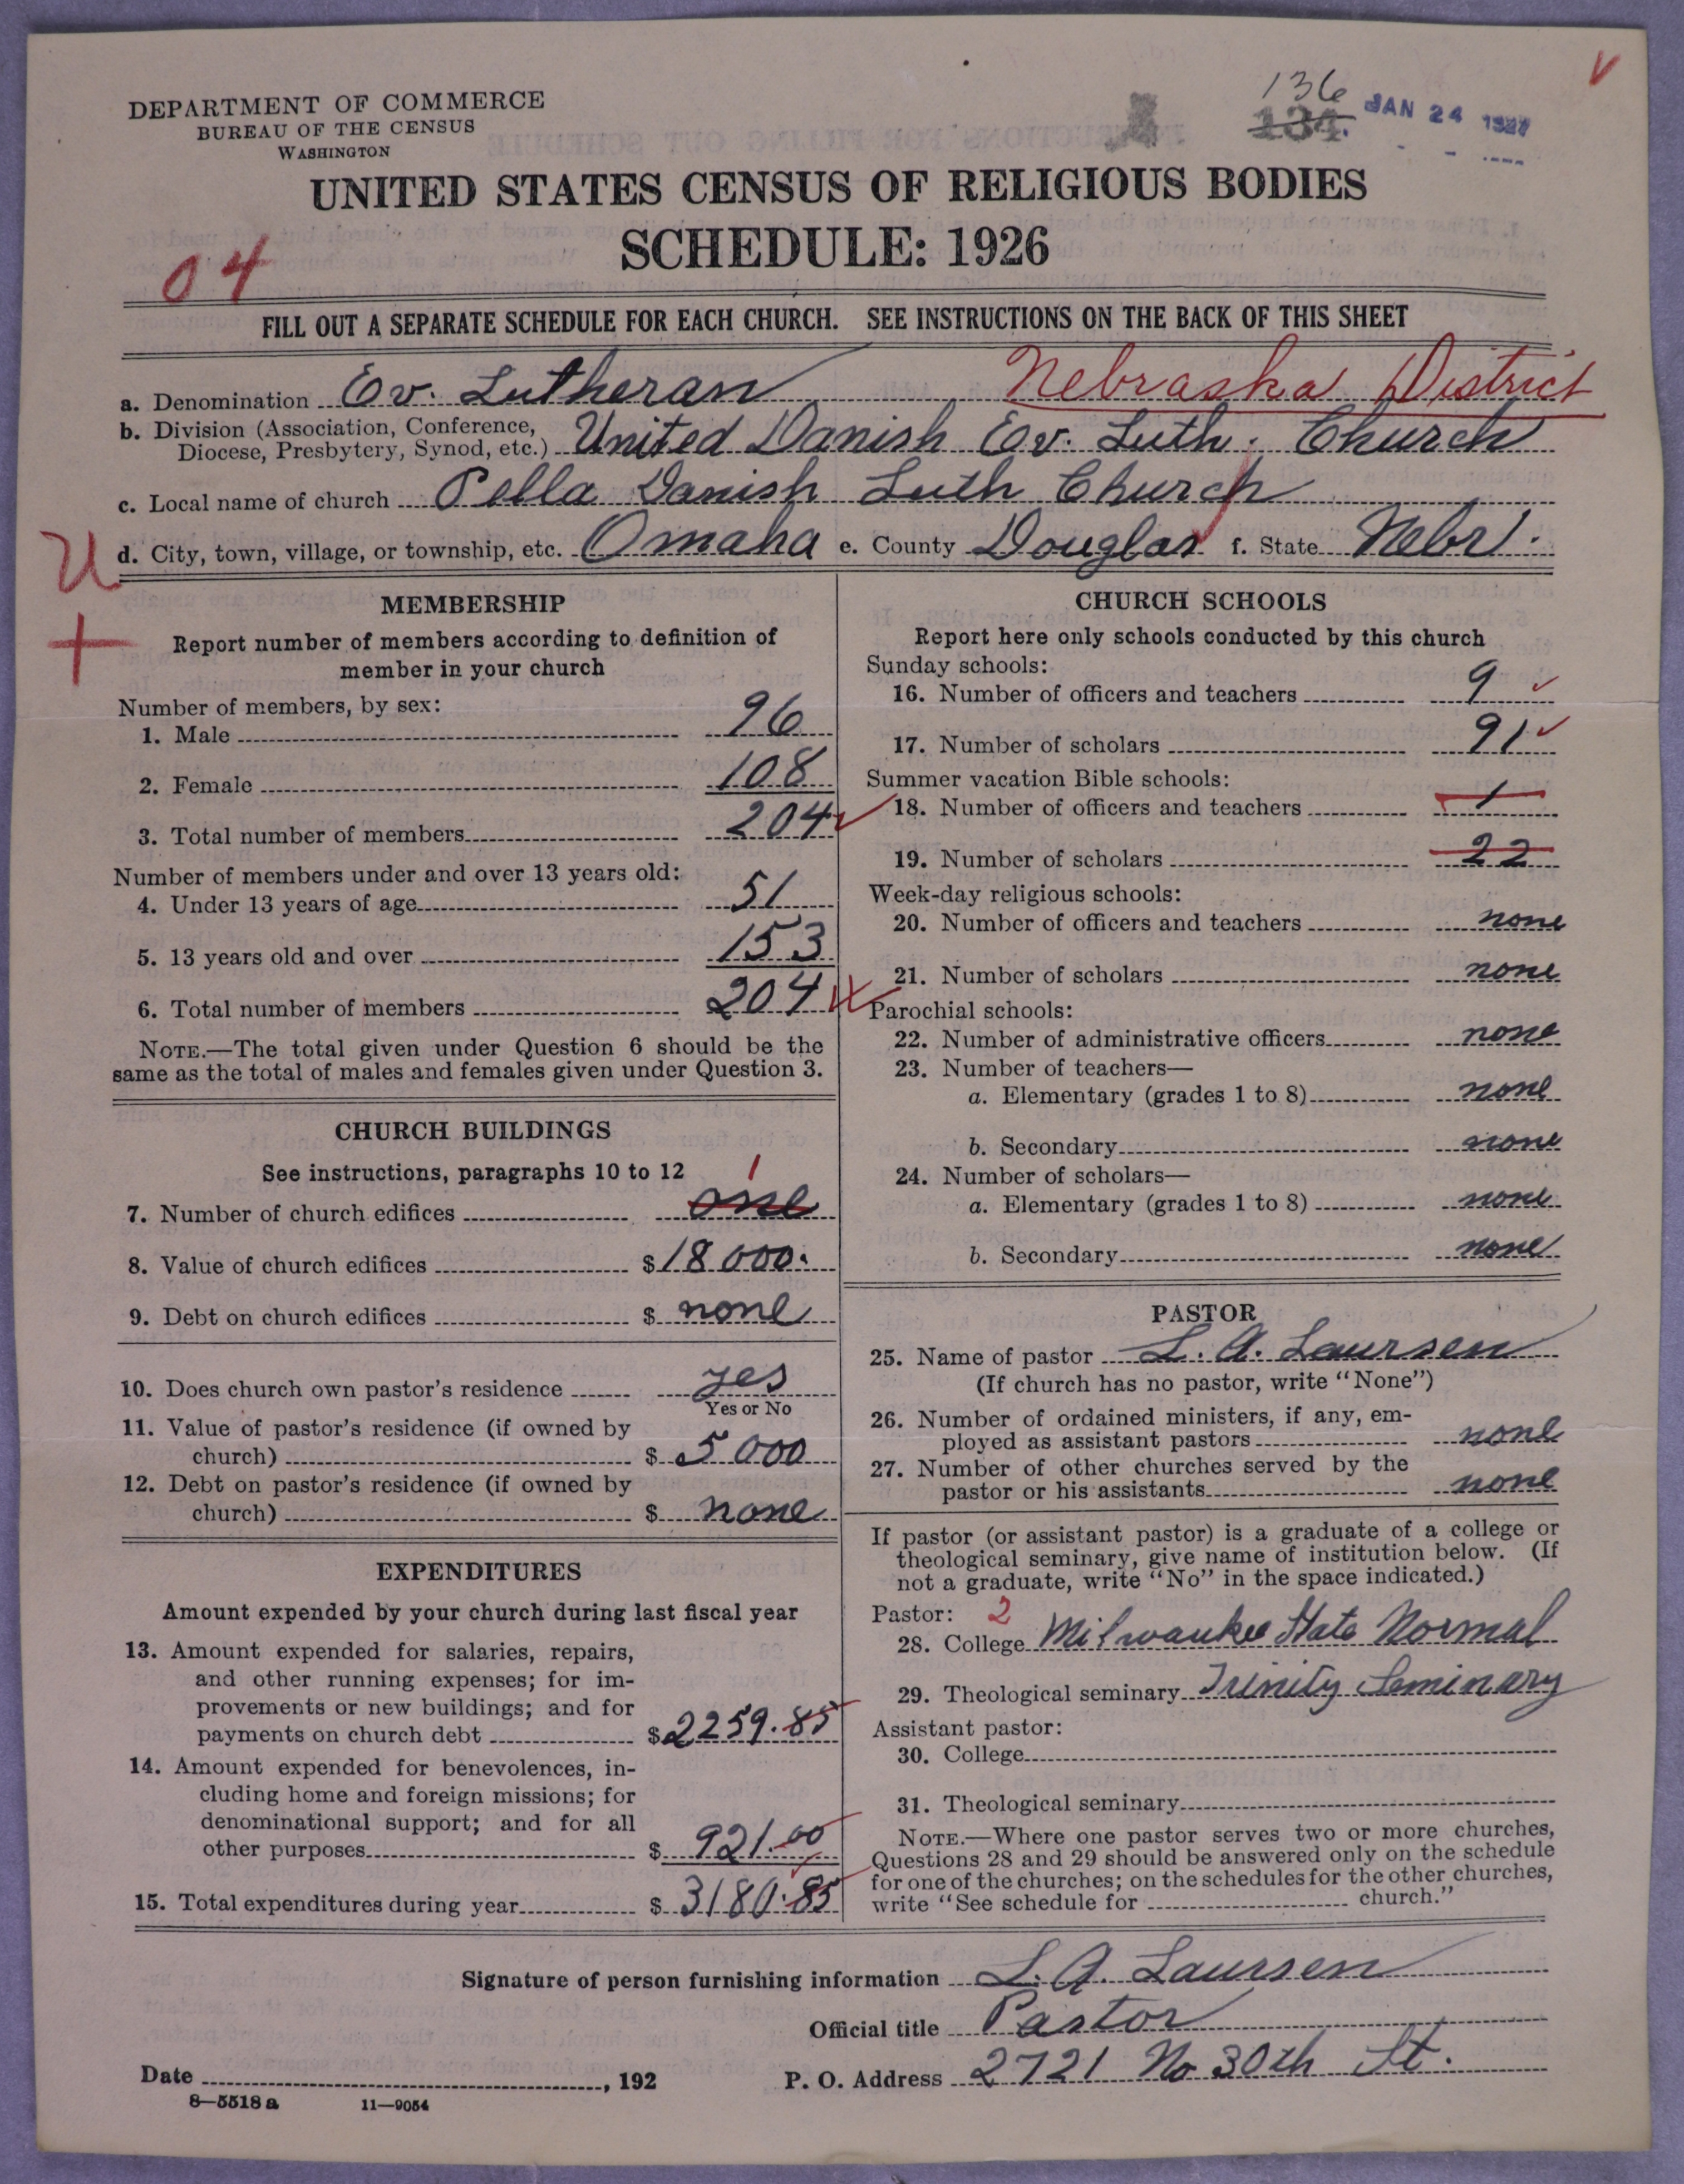 136
134.
JAN 24 1927
DEPARTMENT OF COMMERCE
BUREAU OF THE CENSUS
WASHINGTON
UNITED STATES CENSUS OF RELIGIOUS BODIES
SCHEDULE: 1926
04
FILL OUT A SEPARATE SCHEDULE FOR EACH CHURCH. SEE INSTRUCTIONS ON THE BACK OF THIS SHEET
a. Denomination Ev. Lutheran Nebraska District
b. Division (Association, Conference,
Diocese, Presbytery, Synod, etc.) United Danish Ev. Luth. Church
c. Local name of church Pella Danish Luth Church
d. City, town, village, or township, etc. Omaha e. County Douglas f. State Nebr.
U
+
MEMBERSHIP
Report number of members according to definition of
member in your church
Number of members, by sex:
1. Male 96
2. Female 108
3. Total number of members 204
Number of members under and over 13 years old:
4. Under 13 years of age 51
5. 13 years old and over 153
6. Total number of members 204
NOTE.—The total given under Question 6 should be the
same as the total of males and females given under Question 3.
CHURCH BUILDINGS
See instructions, paragraphs 10 to 12 1
7. Number of church edifices one
8. Value of church edifices $ 18 000.
9. Debt on church edifices $ none
10. Does church own pastor's residence yes
Yes or No
11. Value of pastor's residence (if owned by
church) $ 5 000
12. Debt on pastor's residence (if owned by
church) $ none
EXPENDITURES
Amount expended by your church during last fiscal year
13. Amount expended for salaries, repairs,
and other running expenses; for im-
provements or new buildings; and for
payments on church debt $ 2259.85
14. Amount expended for benevolences, in-
cluding home and foreign missions; for
denominational support; and for all
other purposes $ 921.00
15. Total expenditures during year $ 3180.85
CHURCH SCHOOLS
Report here only schools conducted by this church
Sunday schools:
16. Number of officers and teachers 9
17. Number of scholars 91
Summer vacation Bible schools:
18. Number of officers and teachers 1
19. Number of scholars 22
Week-day religious schools:
20. Number of officers and teachers none
21. Number of scholars none
Parochial schools:
22. Number of administrative officers none
23. Number of teachers—
a. Elementary (grades 1 to 8) none
b. Secondary none
24. Number of scholars—
a. Elementary (grades 1 to 8) none
b. Secondary none
PASTOR
25. Name of pastor L. A. Laursen
(If church has no pastor, write "None")
26. Number of ordained ministers, if any, em-
ployed as assistant pastors none
27. Number of other churches served by the
pastor or his assistants none
If pastor (or assistant pastor) is a graduate of a college or
theological seminary, give name of institution below. (If
not a graduate, write "No" in the space indicated.)
Pastor: 2
28. College Milwaukee State Normal
29. Theological seminary Trinity Seminary
Assistant pastor:
30. College
31. Theological seminary
NOTE.—Where one pastor serves two or more churches,
Questions 28 and 29 should be answered only on the schedule
for one of the churches; on the schedules for the other churches,
write "See schedule for church."
Signature of person furnishing information L. A. Laursen
Official title Pastor
Date , 192 P. O. Address 2721 No 30th St.
8—5518 a 11—9054